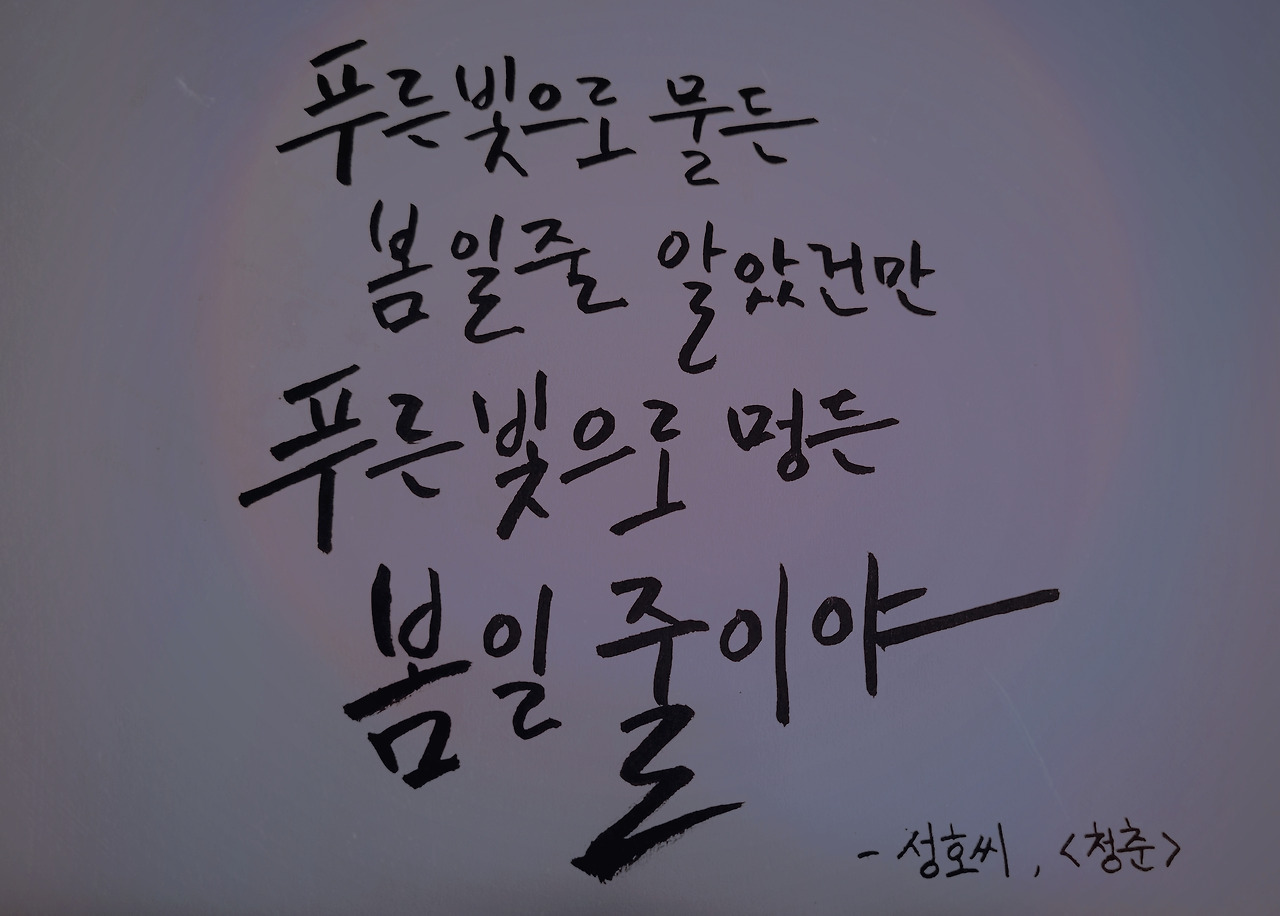 푸른 빛으로 물든
봄일줄 알았건만
푸른 빛으로 멍든
봄일 줄이야
- 성호씨, <청춘>